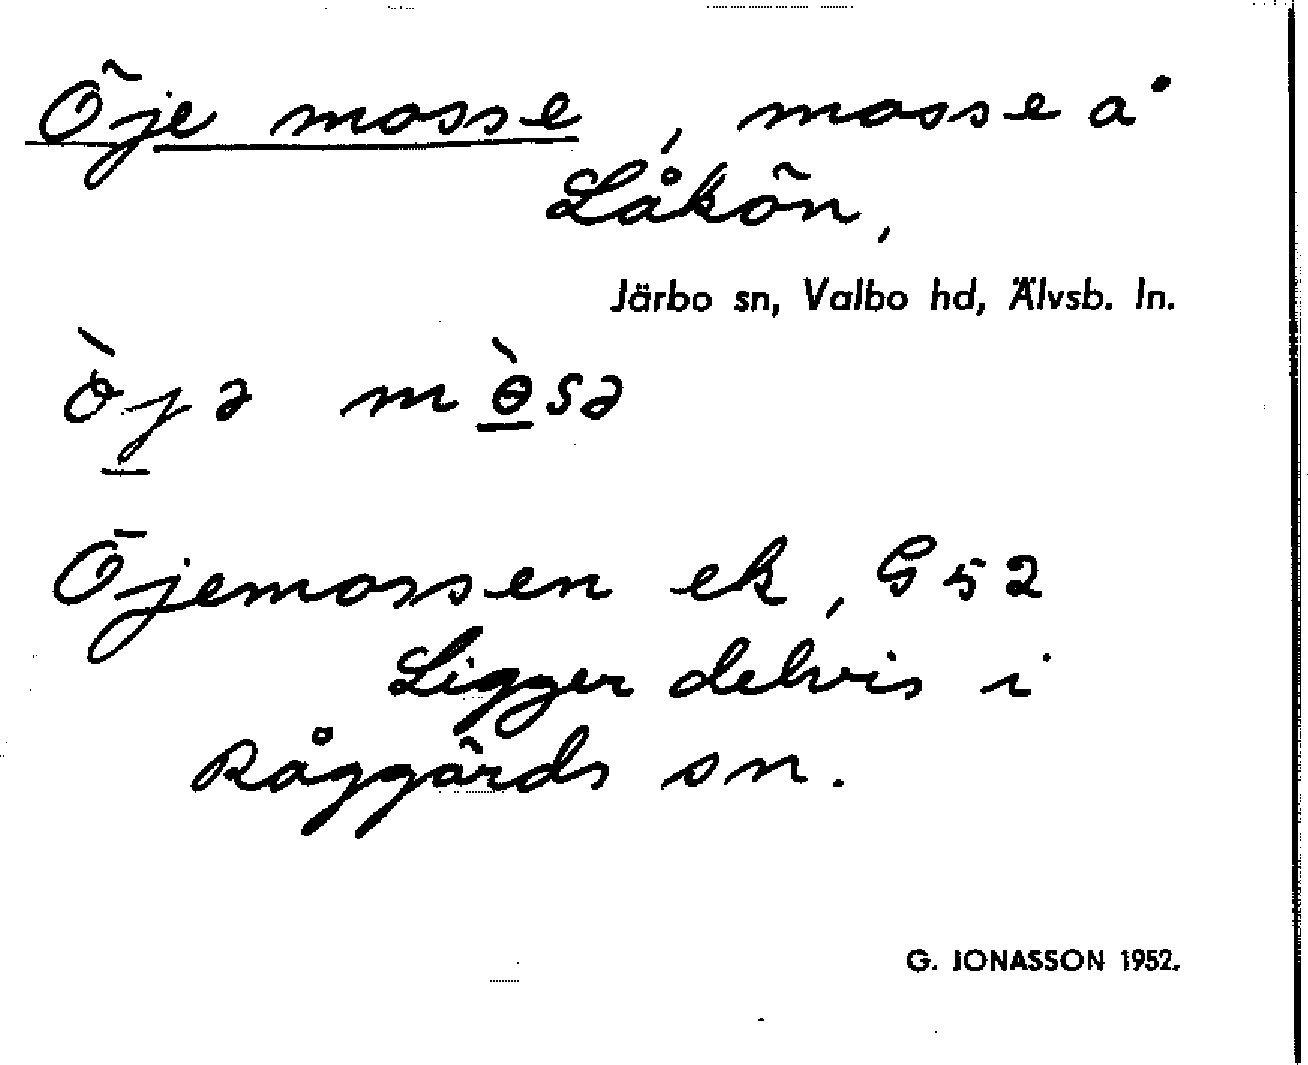 Öje mosse, mosse å
Låkön,
Järbo sn, Valbo hd, Älvsb. ln.
ὸ̵jə mɵ̀sə
Öjemossen ek, G 52
Ligger delvis i
Råggärds sn.
G. JONASSON 1952.